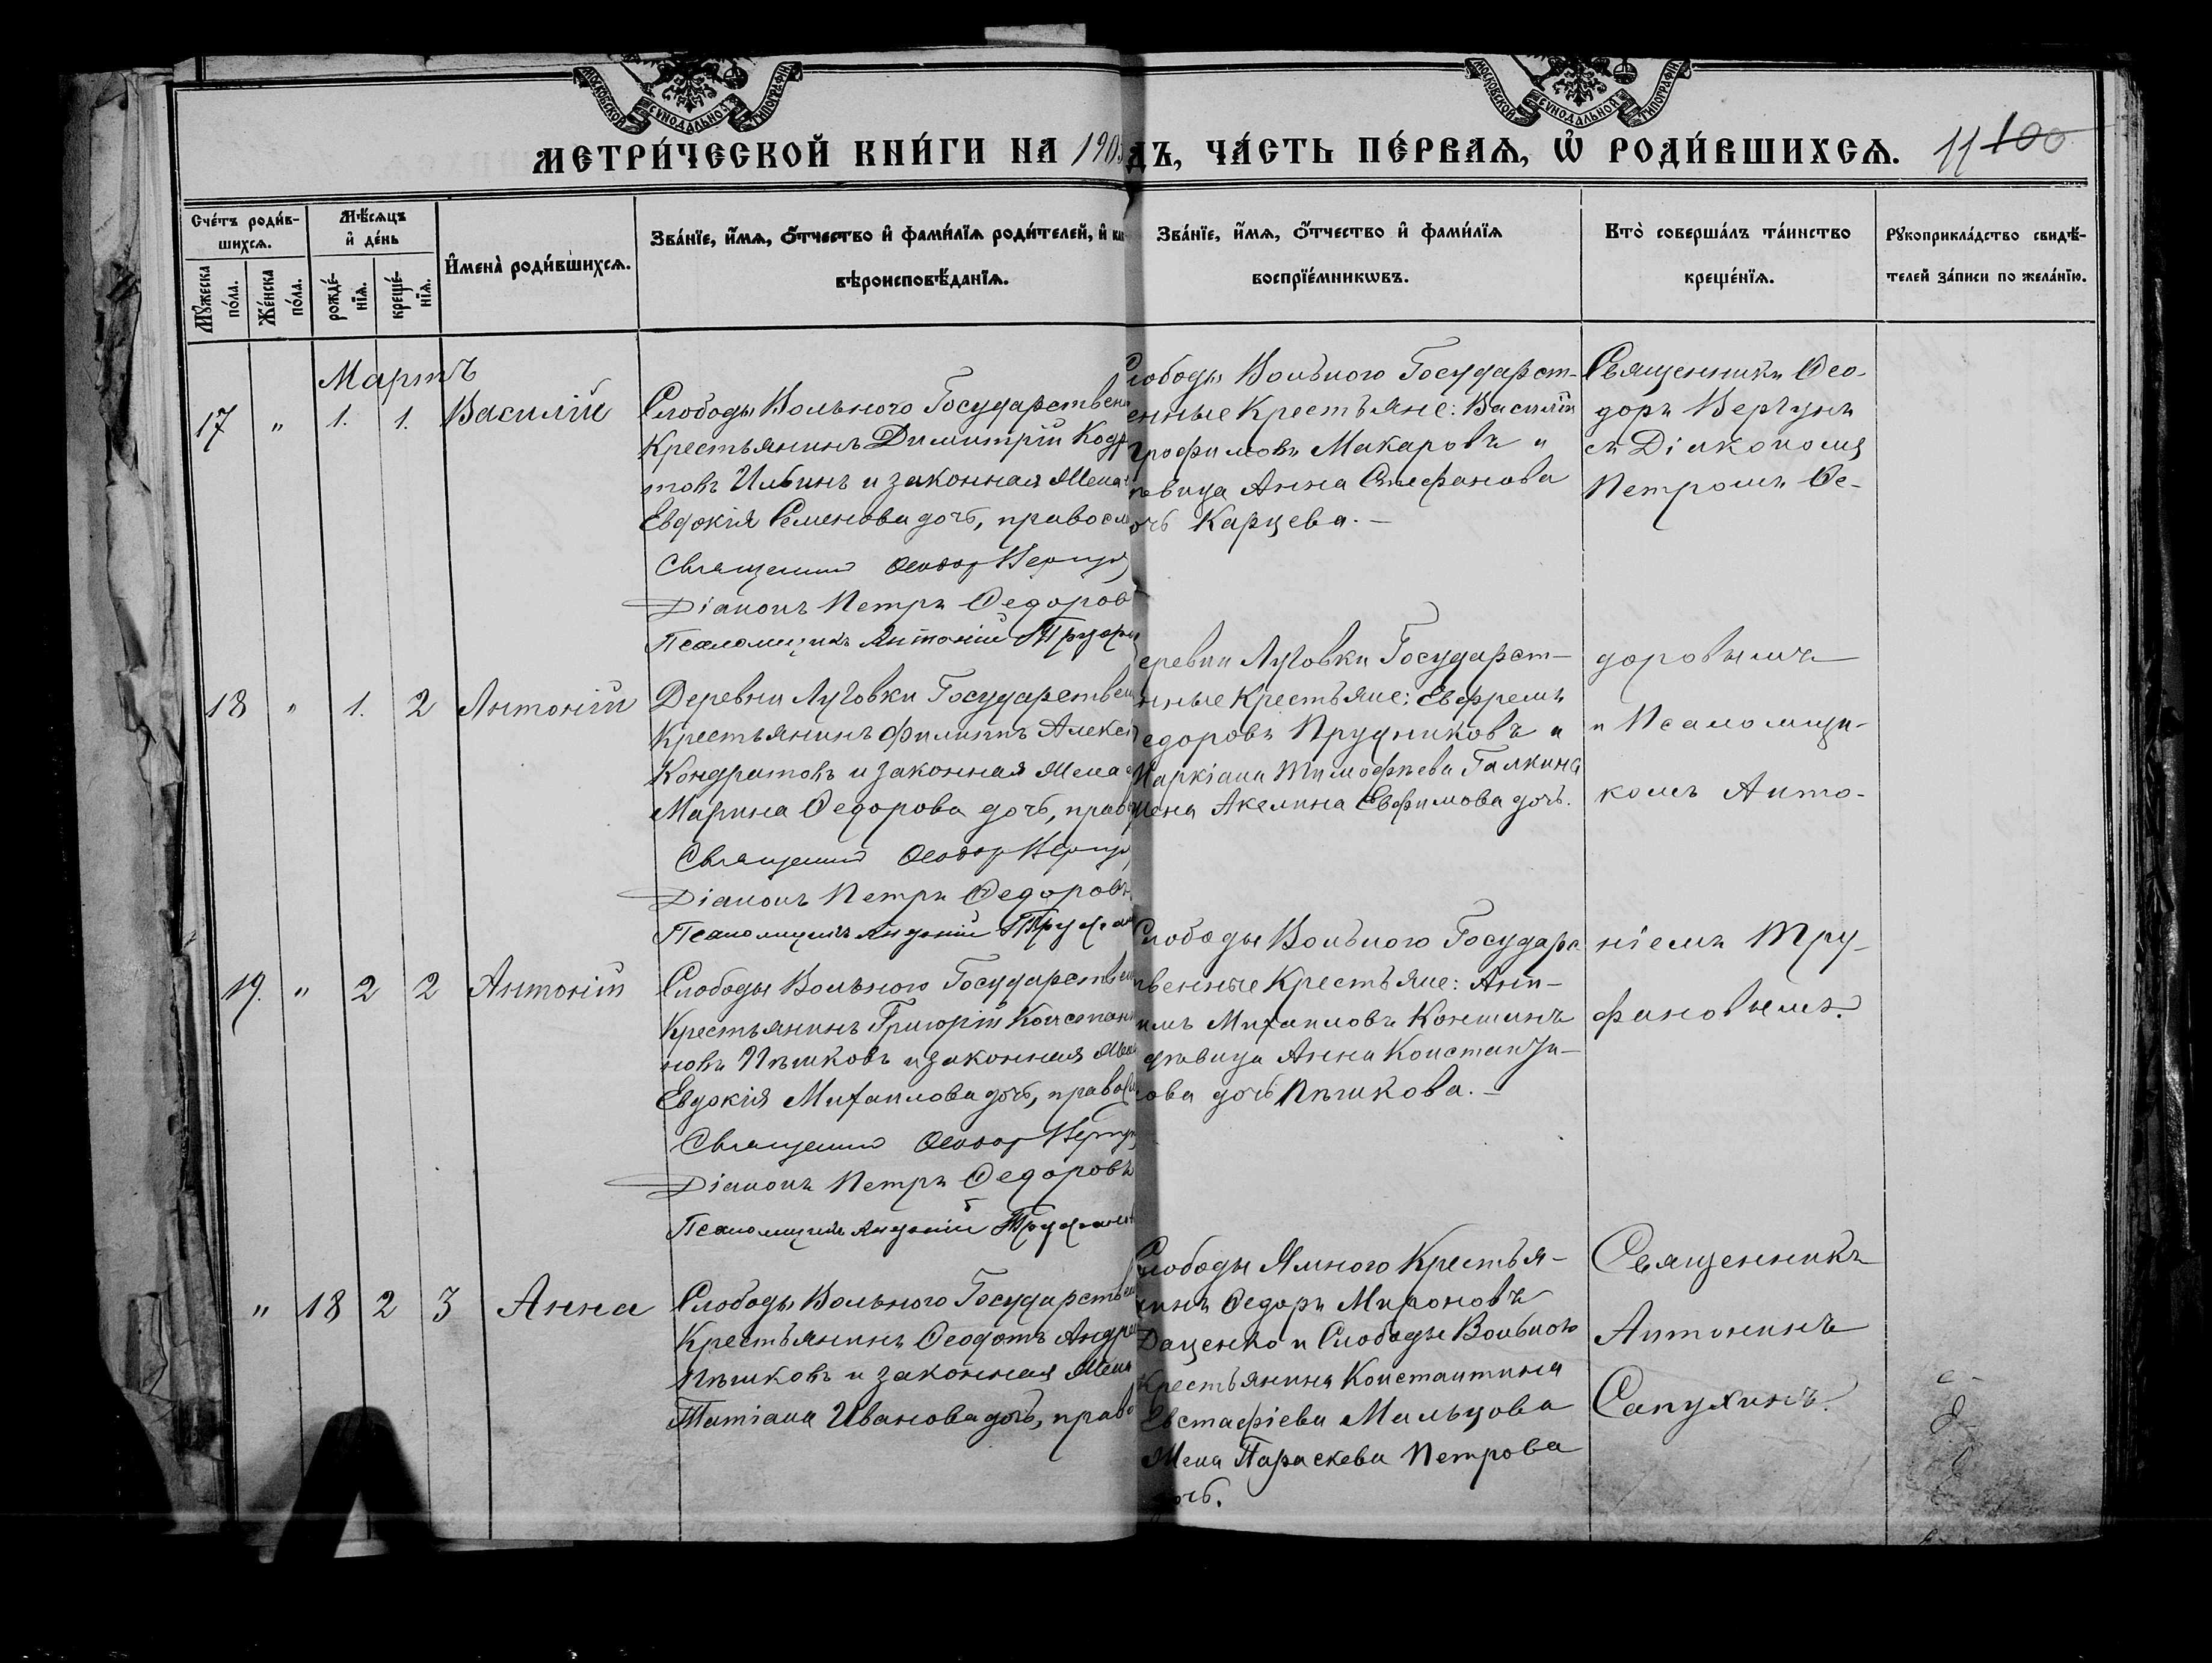 МОСКОВСКОЙ СѴНОДАЛЬНОЙ ТИПОГРАФІИ
МОСКОВСКОЙ СѴНОДАЛЬНОЙ ТИПОГРАФІИ
МЕТРИ́ЧЕСКОЙ КНИ́ГИ НА 190 ДЪ, ЧА́СТЬ ПЕ́РВАѦ, Ѡ҆ РОДИ́ВШИХСѦ.
11 100
Сче́тъ роди́в-
шихсѧ.
Мꙋ́жеска по́ла.
Же́нска по́ла.
Мѣ́сѧцъ
и҆ де́нь
рожде́-
нїѧ.
креще́-
нїѧ.
И҆мена̀ роди́вшихсѧ.
Зва́нїе, и҆́мѧ, ѻ҆́тчество и҆ фами́лїѧ роди́телей, и҆
вѣроисповѣ́данїѧ.
Зва́нїе, и҆́мѧ, ѻ҆́тчество и҆ фами́лїѧ
воспрїе́мникѡвъ.
Кто̀ соверша́лъ та́инство
креще́нїѧ.
Рꙋкоприкла́дство свидѣ́-
телей за́писи по жела́нїю.
Мартъ
17 " 1. 1. Василій
Слободы Вольного Государствен
Крестьянинъ Димитрій Кодр
товъ Ильинъ и законная жена
Евдокія Семенова дочь, правосл
Священник Ѳеодор Вергун
Діаконъ Петръ Ѳедоров
Псаломщикъ Антоній Труфан
слободы Вольного Государст-
енные Крестьяне: Василій
Трофимовъ Макаровъ и
ѣвица Анна Стефанова
очь Карцева. —
Священникъ Ѳео-
доръ Вергунъ
съ Діакономъ
Петромъ Ѳе-
18 " 1. 2 Антоній
Деревни Луговки Государствен
Крестьянинъ Филиппъ Алексе
Кондратовъ и законная жена
Марина Ѳедорова дочь, прав
Священник Ѳеодор Вергун
Діаконъ Петръ Ѳедоровъ
Псаломщикъ Антоній Труфан
еревни Луговки Государст-
нные Крестьяне: Ефремъ
едоровъ Прудниковъ и
Маркіана Тимофѣева Галкина
жена Акелина Евфимова дочь.
доровымъ
и Псаломщи-
комъ Анто-
19. " 2 2 Антоній
Слободы Вольного Государствен
Крестьянинъ Григорій Констан
новъ Пѣшковъ и законная жена
Евдокія Михаилова дочь, право
Священник Ѳеодор Вергун
Діаконъ Петръ Ѳедоровъ
Псаломщикъ Антоній Труфанов
слободы Вольного Государс
твенные Крестьяне: Ант-
имъ Михаиловъ Коншинъ
дѣвица Анна Константи-
нова дочь Пѣшкова. —
ніемъ Тру-
фановымъ.
" 18 2 3 Анна
Слободы Вольного Государствен
Крестьянинъ Ѳеодотъ Андре
Пѣшковъ и законная жена
Татіана Иванова дочь, право
слободы Ямного Крестья-
нинъ Ѳедоръ Мироновъ
Даценко и Слободы Вольного
Крестьянина Константина
Евстафіева Мальцова
жена Параскева Петрова
дочь.
Священникъ
Антонинъ
Сапухинъ.